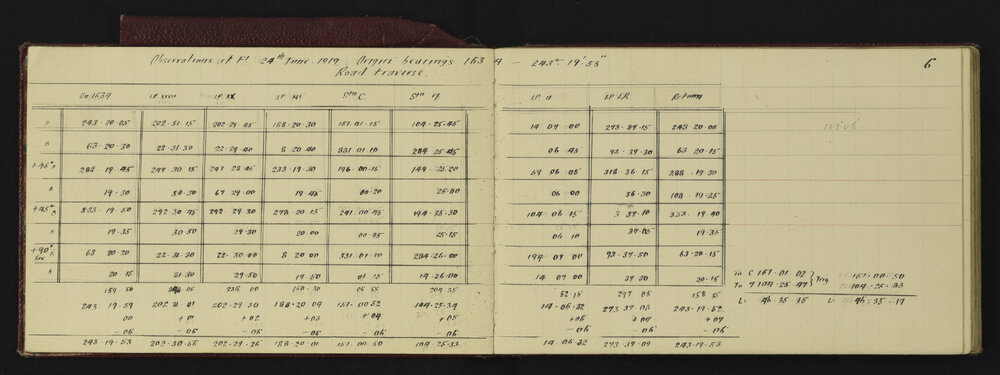 Observations at F! 24th June. 1919. Origin bearings 163 A - 243° 19' 53" 6
Road Traverse
On 1634 I.P. XXVII I.P. XX I.P. XXI Stn C. Stn I.P. I.P.
A 243·20·05 202·31·15 202·29·45 188·20·30 151·01·15 104·25·45 14 07 00 273·37·15 243 20·00
B 63·20·30 22·31 30 22·29·40 8 20·40 331 01 10 284 25·45 06 45 93·37·30 63 20·15
+45° A 288·19·45 247·30·15 247 28 45 233·19·30 196·00·15 149·25·20 59 06·05 318·36·15 288·19·30
19·30 30·30 67 29·00 19·45 00·20 25·00 06·00 36·30 108·19·25
+45° 333·19·50 292·30·45 292·29·30 278·20·15 241·00·45 194·25·30 104·06 15 3 37·10 333·19·40
19·35 30·50 29·30 20·00 00·45 25·15 06 10 37·05 19·35
+90° 63 20·20 22·31·30 22·30·00 8 20·00 331·01·10 284·26·00 194·07·00 93·37·50 63·20·15
20 15 31·30 29·50 19·50 01·15 14·26·00 14 07·00 37·30 20·15
To C 151·01 02 } Trig 151·00·50
159·50 235 00 150·30 209 35 52·15 297 05 158 55
To 7 104·25·47 104·25·33
243 19·59 202 31 01 202·29·30 188·20·04 151·00 52 104·25·34 14·06·32 273 37·08 243·19·52
L: 46·35 15 L: 46·35·17
00 +01 +02 +03 +04 +05 +06 +07 +07
-06 -06 -06 -06 -06 -06 -06 -06 -06
243·19·53 202·30·56 202·29·26 188·20·01 151·00·50 104·25·33 14·06·32 273·37·09 243·19·53